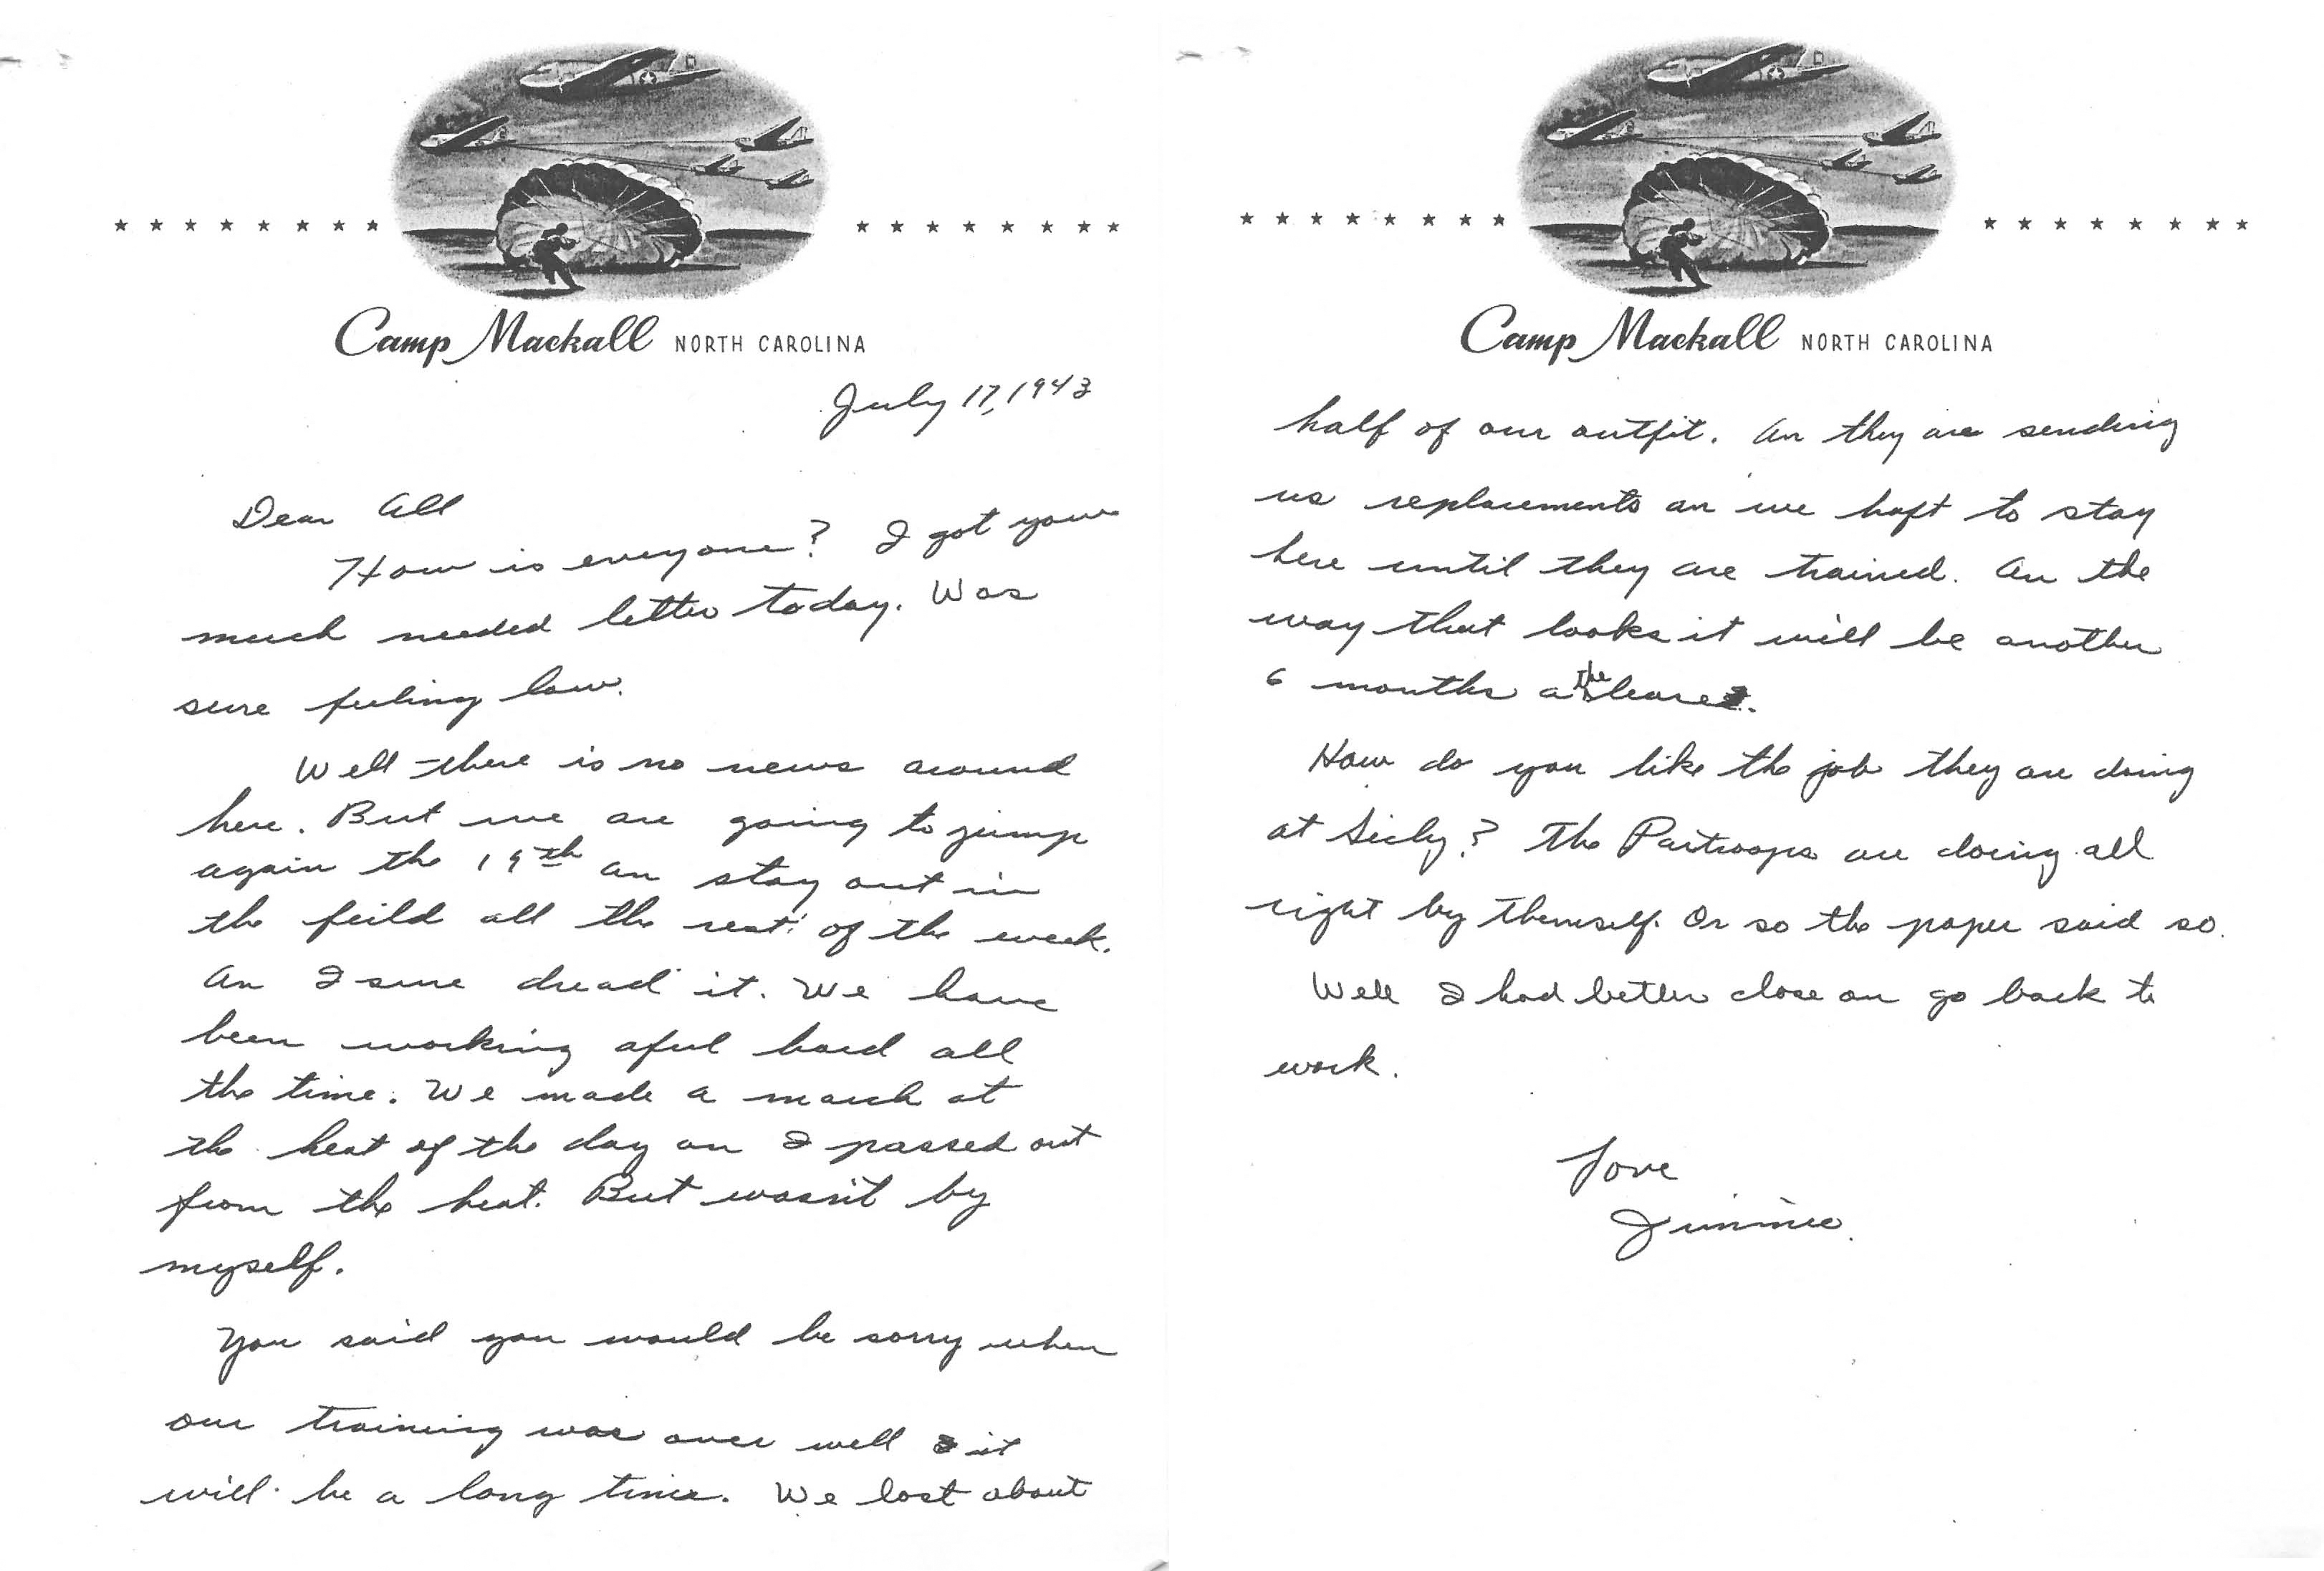 Camp Mackall NORTH CAROLINA
July 17, 1943
Dear All
How is everyone? I got your
much needed letter today. Was
sure feeling low.
Well there is no news around
here. But we are going to jump
again the 19th an stay out in
the feild all the rest of the week.
An I sure dread it. We have
been working aful hard all
the time. We made a march at
the heat of the day an I passed out
from the heat. But wasn't by
myself.
You said you would be sorry when
our training was over well it
will be a long time. We lost about
Camp Mackall NORTH CAROLINA
half of our outfit. An they are sending
us replacements an we haft to stay
here until they are trained. An the
way that looks it will be another
6 months a the leare.
How do you like the job they are doing
at Sicily? The Partroops are doing all
right by themself. Or so the paper said so.
Well I had better close an go back to
work.
Love
Jimmie.